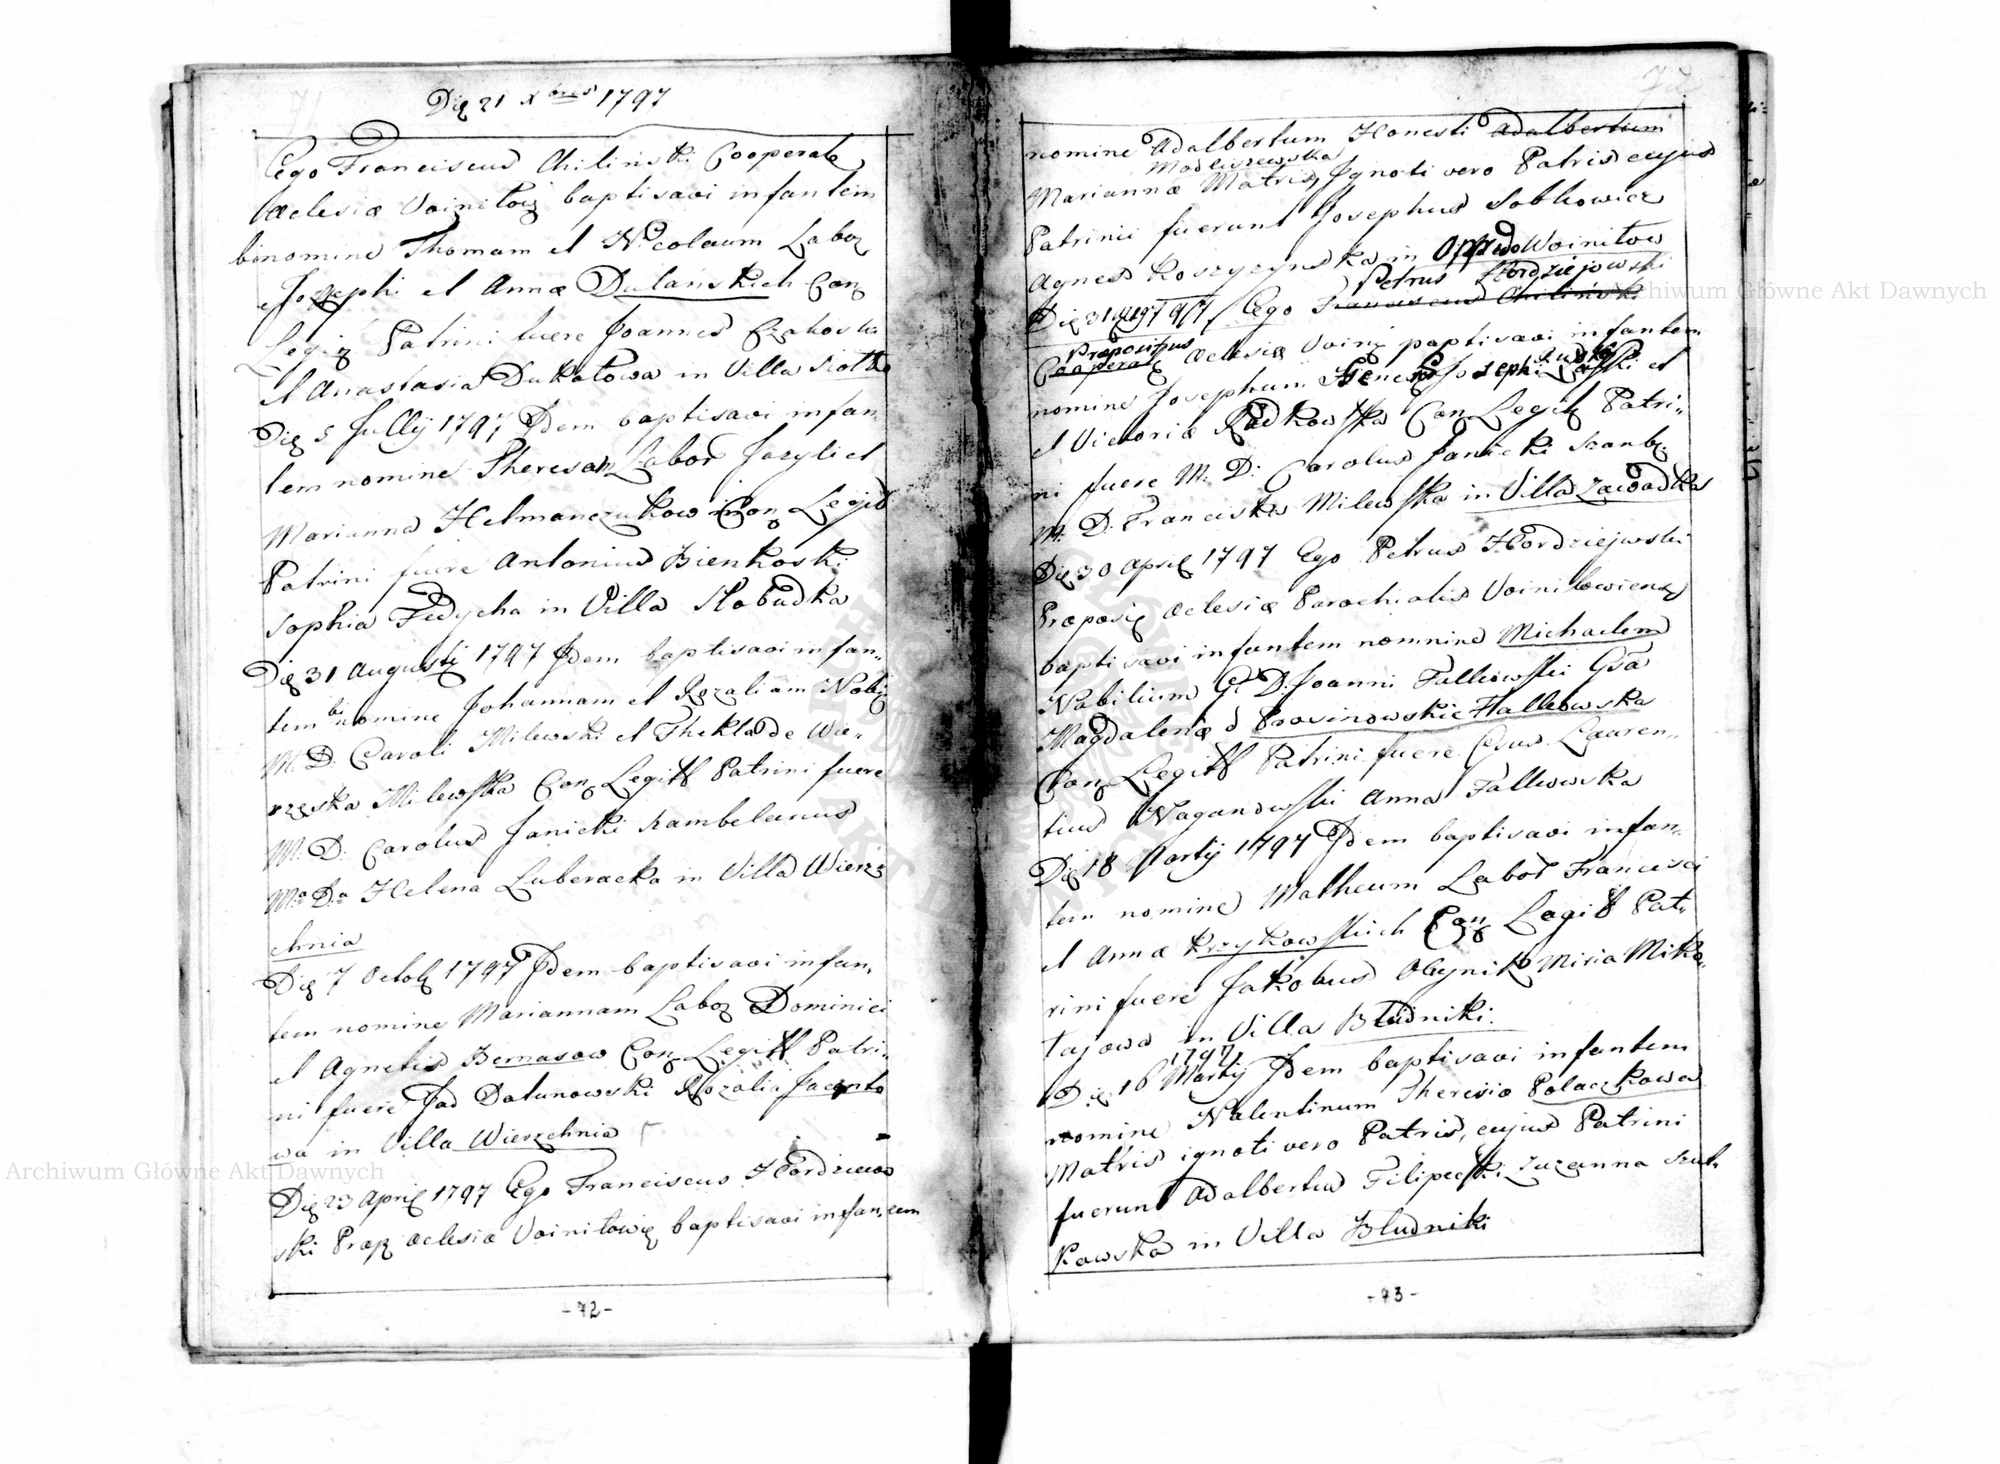 Die 21 Xbres 1797
Ego Franciscus Chiliński Cooperate
Aclesiæ baptisavi infantem
binomine Thomam et Nicolaum Laboz
Josephi et Annæ Dulańskich Con
Legiz Patrini fuere Joannes
et Anastasia Dukatowa in Villa
Die 5 Jullÿ 1797 Jdem baptisavi infan
tem nomine Theresam Labor et
Marianna Hetmanczukow Con Legit
Patrini fuere Antonius Bienkoski
Sophia Fedycha in Villa Slobudka
Die 31 Augusti 1797 Jdem baptisavi infan-
tem binomine Johannam et Rozaliam Nobiz
M. D. Caroli Milewski et Thekla de Wie-
rzęska Milewska Con Legitt Patrini fuere
M. D. Carolus Janicki Kambelanus
Ma Da Helena Luberacka in Villa Wierz
chnia
Die 7 Octob 1797 Jdem baptisavi infan,
tem nomine Mariannam Laboz Dominici
et Agnetis Bernasow Con Legitt Patri-
ni fuere Jad Datunowski Rozalia Jacento
wa in Villa Wierzchnia
Die 23 April 1797 Ego Franciscus Hordziejow
ski Præpz Aclesiæ Voiniłowię baptisavi infantem
-72-
72
nomine Adalbertum Honesti Adalbertum
Modliszewska
Mariannæ Matris, Jgnoti vero Patris cujus
Patrinii fuerunt Josephus Sobkowicz
Agnes Koszyzynska in Oppido Woiniłow
Petrus Hordziejowski
Die 31 1797 Ego Franciscus Chiliński
Præpositus
Cooperat Aclesiæ Voinę baptisavi infantem
nomine Josephum Josephi et
et Victoriæ Radkowska Con Legitz Patri-
ni fuere M. D. Carolus Janicki Szamb
M. D. Franciska Milewska in Villa Zawadka
Die 30 April 1797 Ego Petrus Hordziejwski
Præposię Aclesiæ Parochialis Voiniłowiens
baptisavi infantem nomnine Michaelem
Nobilium G. D. Joanni Fallewski Gsa
Magdalenæ d Prosinowskie Hallewska
Con Legitt Patrini fuere Gsus Lauren-
tius Naganowski Anna Fallewska
Die 18 Martÿ 1797 Jdem baptisavi infan-
tem nomine Matheum Labor Francisci
et Annæ Krzykowskich Con Legitt Pat-
rini fuere Jakobus Oleynik Miria Miko-
łajowa in Villa Błudniki.
1797
Die 16 Martÿ Jdem baptisavi infantem
nomine Nalentinum Theresiæ Polaczkowa
Matris ignoti vero Patris, cujus Patrini
fuerunt Adalbertus Filipecki Zuzanna Szut-
kowska in Villa Bludniki
-73-
Archiwum Główne Akt Dawnych
Archiwum Główne Akt Dawnych